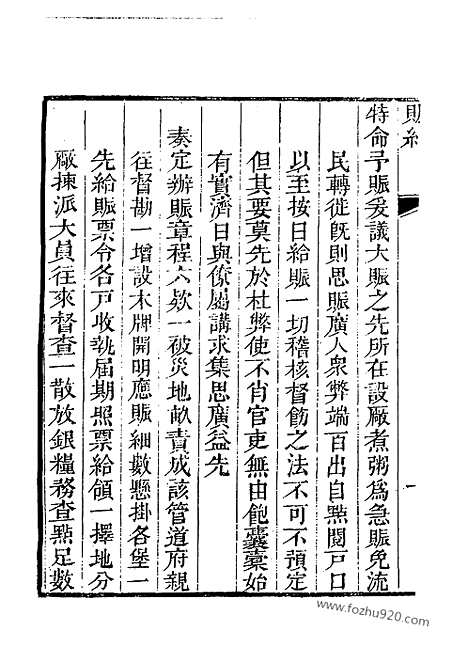 賑紀
一
特命予賑爰議大賑之先所在設厰煮粥爲急賑免流
民轉徙旣則思賑廣人衆弊端百出自點閱戸口
以至按日給賑一切稽核督飭之法不可不預定
但其要莫先於杜弊使不肖官吏無由飽囊橐始
有實濟日與僚屬講求集思廣益先
奏定辦賑章程六欵一破災地畝責成該管道府親
往督勘一增設木牌開明應賑細數懸掛各堡一
先給賑票令各戸收執屆期照票給領一擇地分
厰揀派大員往來督查一散放銀糧務查點足數
www.fozhu920.com